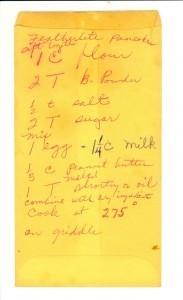 Featherlite Pancakes
sift together
1 C flour
2 T B. Powder
½ t salt
2 T sugar
mix
1 egg - 1¼ C milk
⅓ C Peanut butter
melted
1 T shortning or oil
combine with dry ingredients
Cook at 275°
on griddle